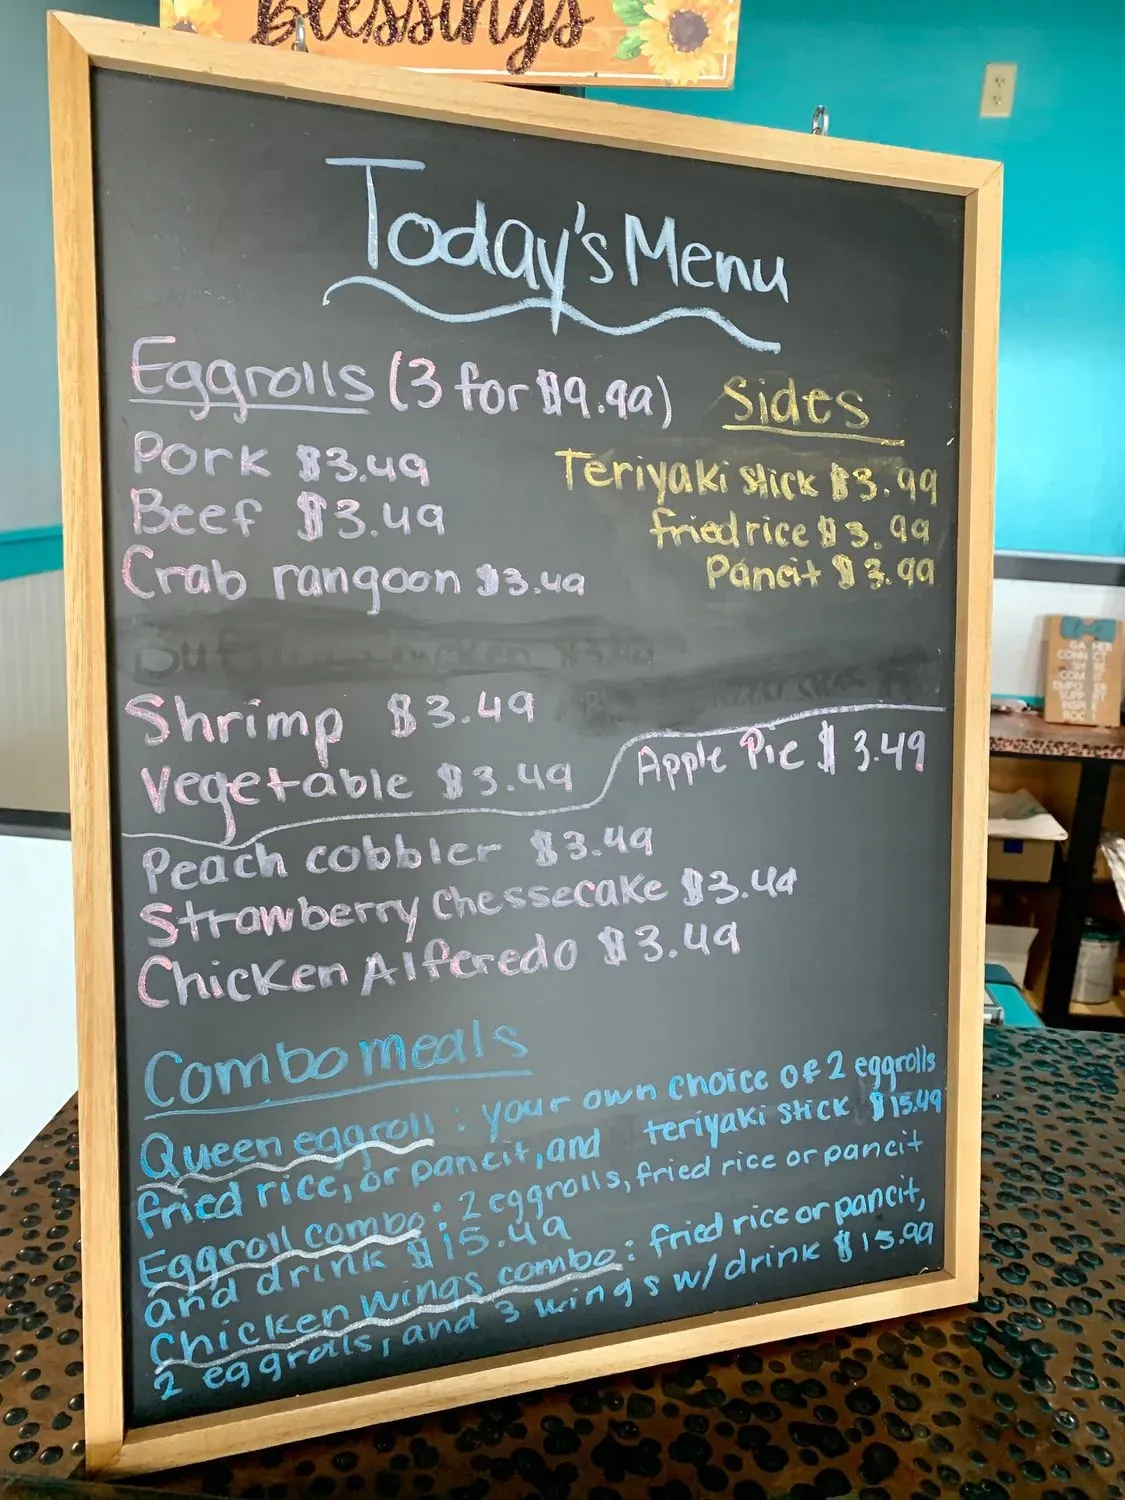 Blessings
Today's Menu
Eggrolls (3 for $9.99)
Pork $3.49
Beef $3.49
Crab rangoon $3.49
Shrimp $3.49
Vegetable $3.49
Sides
Teriyaki stick $3.99
fried rice $3.99
Pancit $3.99
Apple Pie $3.49
Peach cobbler $3.49
Strawberry Chessecake $3.49
Chicken Alferedo $3.49
Combo meals
Queen eggroll: your own choice of 2 eggrolls
fried rice, or pancit, and teriyaki stick $15.49
Eggroll combo: 2 eggrolls, fried rice or pancit
and drink $15.49
Chicken Wings combo: fried rice or pancit,
2 eggrolls, and 3 wings w/ drink $15.99